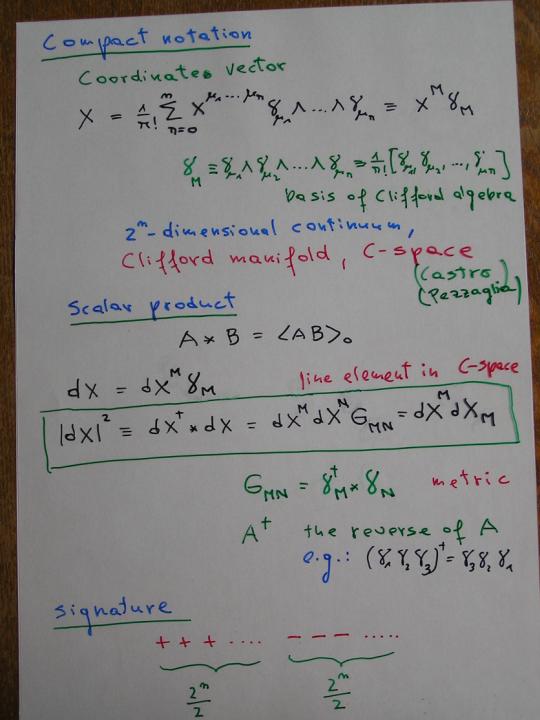 Compact notation
Coordinates vector
X = 1/n! Σ_{n=0}^{n} X^{μ₁...μₙ} γ_{μ₁} ∧ ... ∧ γ_{μₙ} ≡ X^M γ_M
γ_M ≡ γ_{μ₁} ∧ γ_{μ₂} ∧ ... ∧ γ_{μₙ} ≡ 1/n! [γ_{μ₁}, γ_{μ₂}, ..., γ_{μₙ}]
basis of Clifford algebra
2ⁿ-dimensional continuum,
Clifford manifold, C-space
(Castro)
(Pezzaglia)
Scalar product
A * B = ⟨AB⟩₀
dX = dX^M γ_M line element in C-space
|dX|² ≡ dX† * dX = dX^M dX^N G_MN = dX^M dX_M
G_MN = γ†_M * γ_N metric
A† the reverse of A
e.g.: (γ₁ γ₂ γ₃)† = γ₃ γ₂ γ₁
signature
+ + + .... − − − .....
2ⁿ/2 2ⁿ/2